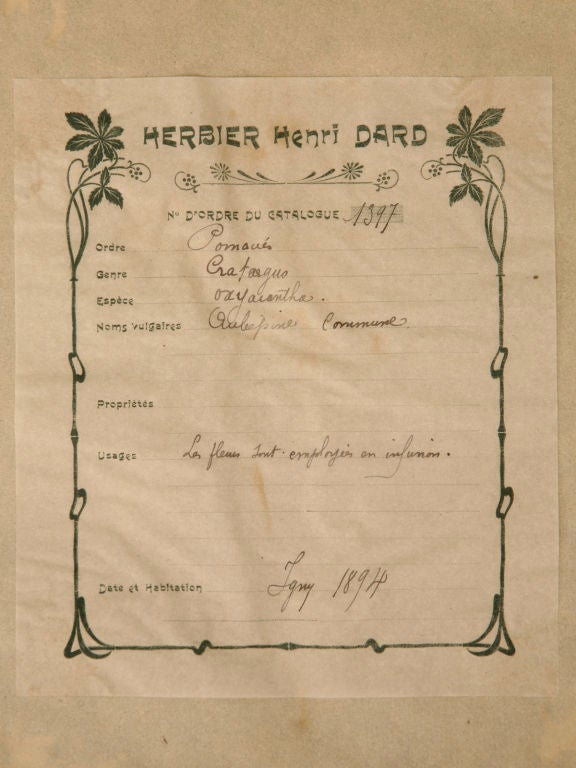 HERBIER Henri DARD
N° D'ORDRE DU CATALOGUE 1397
Ordre Pomacés
Genre Crataegus
Espèce oxyacantha.
Noms vulgaires Aubépine Commune
Propriétés
Usages Les fleurs sont employées en infusion.
Date et Habitation Igny 1894